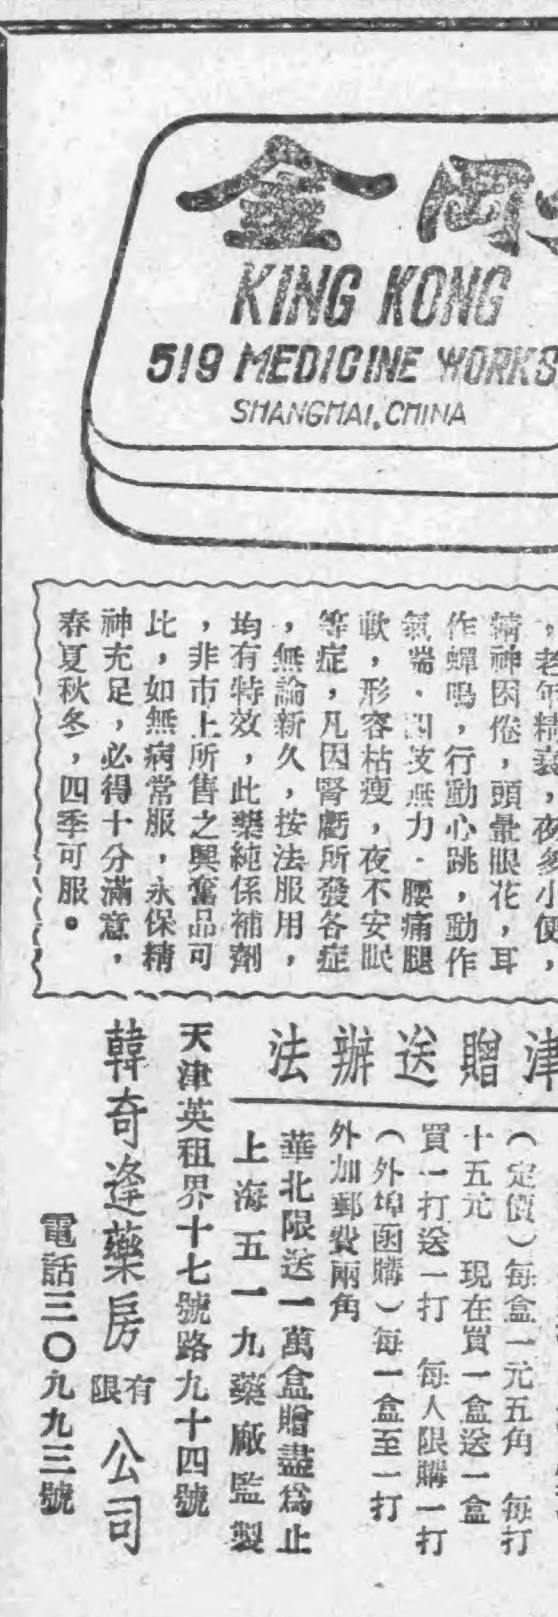 金岡
KING KONG
519 MEDICINE WORKS
SHANGHAI, CHINA
，老年精衰，夜多小便，
精神困倦，頭暈眼花，耳
作蟬鳴，行動心跳，動作
氣喘，四肢無力，腰痛腿
軟，形容枯瘦，夜不安眠
等症，凡因腎虧所發各症
，無論新久，按法服用，
均有特效，此藥純係補劑
，非市上所售之興奮品可
比，如無病常服，永保精
神充足，必得十分滿意，
春夏秋冬，四季可服。
津贈送辦法
（定價）每盒一元五角　每打
十五元　現在買一盒送一盒
買一打送一打　每人限購一打
（外埠函購）每一盒至一打
外加郵費兩角
華北限送一萬盒贈盡爲止
上海五一九藥廠監製
天津英租界十七號路九十四號
韓奇逢藥房有限公司
電話三〇九九三號